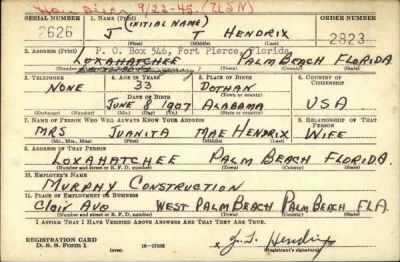 Hon Disch 9/22-45. (USN)
SERIAL NUMBER 1. NAME (Print) ORDER NUMBER
(INITIAL NAME)
2626 J T HENDRIX 2823
(First) (Middle) (Last)
2. ADDRESS (Print) P. O. Box 546, Fort Pierce, Florida
LOXAHATCHEE PALM BEACH FLORIDA
(Town) (County) (State)
3. TELEPHONE 4. AGE IN YEARS 5. PLACE OF BIRTH 6. COUNTRY OF CITIZENSHIP
NONE 33 DOTHAN
DATE OF BIRTH (Town or county)
JUNE 8 1907 ALABAMA USA
(Exchange) (Number) (Mo.) (Day) (Yr.) (State or country)
7. NAME OF PERSON WHO WILL ALWAYS KNOW YOUR ADDRESS 8. RELATIONSHIP OF THAT PERSON
MRS JUANITA MAE HENDRIX WIFE
(Mr., Mrs., Miss) (First) (Middle) (Last)
9. ADDRESS OF THAT PERSON
LOXAHATCHEE PALM BEACH FLORIDA.
(Number and street or R. F. D. number) (Town) (County) (State)
10. EMPLOYER'S NAME
MURPHY CONSTRUCTION
11. PLACE OF EMPLOYMENT OR BUSINESS
Clair Ave WEST PALM BEACH PALM BEACH FLA.
(Number and street or R. F. D. number) (Town) (County) (State)
I AFFIRM THAT I HAVE VERIFIED ABOVE ANSWERS AND THAT THEY ARE TRUE.
REGISTRATION CARD
D. S. S. Form 1 (over) 16-17105 J. T. Hendrix
(Registrant's signature)